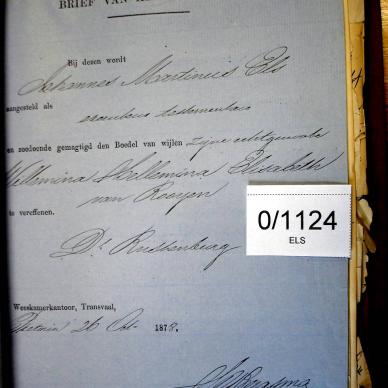 BRIEF VAN
Bij dezen wordt
Johannes Martinus Els
aangesteld als
executeur testamentair
en zoodoende gemagtigd den Boedel van wijlen zijne echtgenoote
Willemina Hellemina Elisabeth
van Rooyen
te vereffenen.
0/1124
ELS
Dt. Rustenburg
Weeskamerkantoor, Transvaal,
Pretoria 26 Oct. 1878.